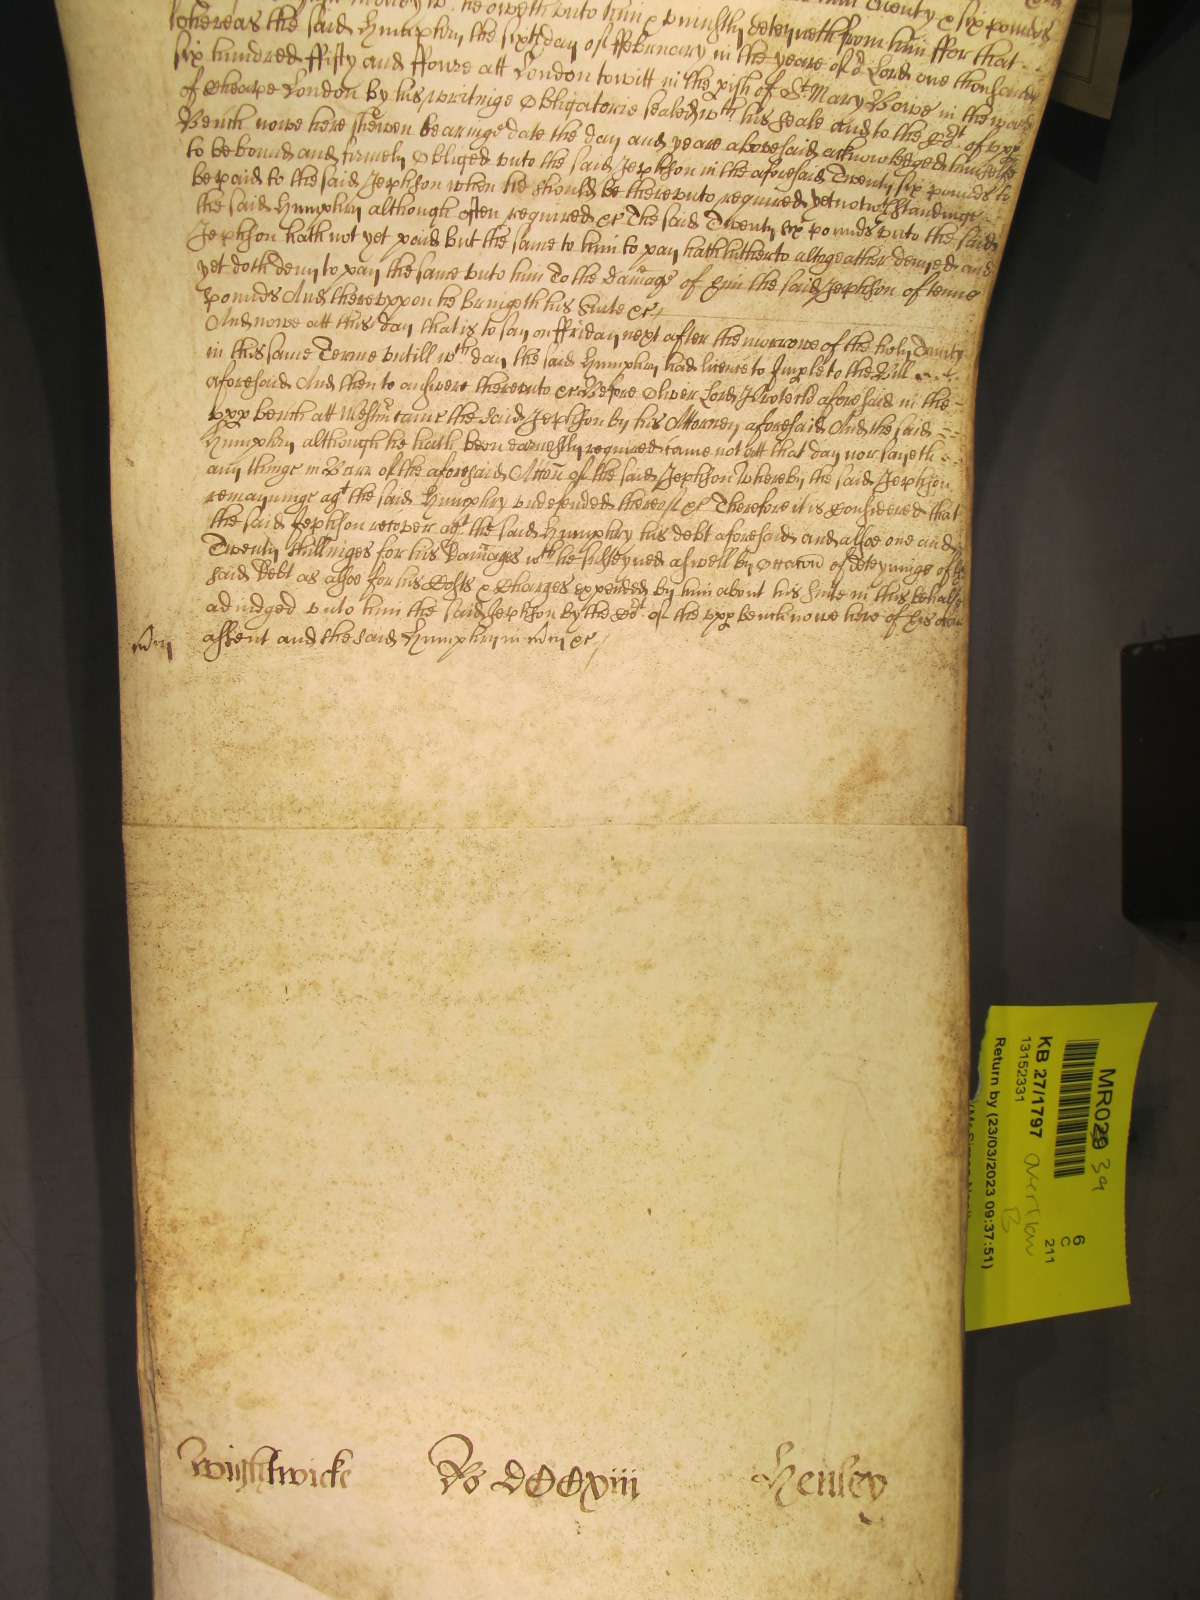 money wch he oweth vnto him & vniustly deteyneth from him ffor that
Whereas the said Humphry the sixth day of ffebruary in the yeare of or Lord one thousand
six hundred ffifty and ffoure att London towitt in the pish of St Mary Bowe in the ward
of Cheape London by his writinge Obligatorie sealed wth his seale and to the Cort of vpp
Bench nowe here shewen bearinge date the day and yeare abovesaid acknowledged himselfe
to be bound and firmely Obliged vnto the said Jephson in the aforesaid Twenty six pounds to
be paid to the said Jephson when he should be therevnto required yet notwthstandinge
the said Humphry although often required &c The said Twenty six pounds vnto the said
Jephson hath not yet paid but the same to him to pay hath hitherto altogeather denyed and
yet doth deny to pay the same vnto him To the damage of him the said Jephson of tenne
pounds And therevppon he bringeth his Suite &c
And nowe att this day that is to say on ffriday next after the morrowe of the holy Trinity
in this same Terme vntill wch day the said Humphry had licence to Imple to the Bill
aforesaid And then to answere therevnto &c Before Oliver Lord Protector aforesaid in the
vpp bench att Westmr came the said Jephson by his Attorney aforesaid And the said
Humphry although he hath been earnestly required came not att that day nor sayeth
any thinge in Barr of the aforesaid Accon of the said Jephson Whereby the said Jephson
remayninge agt the said Humphry vndefended thereof &c Therefore it is Considered that
the said Jephson recover agt the said Humphry his debt aforesaid and alsoe one and
Twenty shillinges for his Damages wch he susteyned aswell by occation of deteyninge of the
said Debt as alsoe for his Costs & Charges expended by him about his Suite in this behalfe
adiudged vnto him the said Jephson by the Cort of the vpp bench nowe here of his owne
mcy assent and the said Humphry in mcy &c
Wightwicke Ro DCCxiii Henley
MR029 39
KB 27/1797
13152331
Return by (23/03/2023 09:37:51)
overflow
B
6
C
211